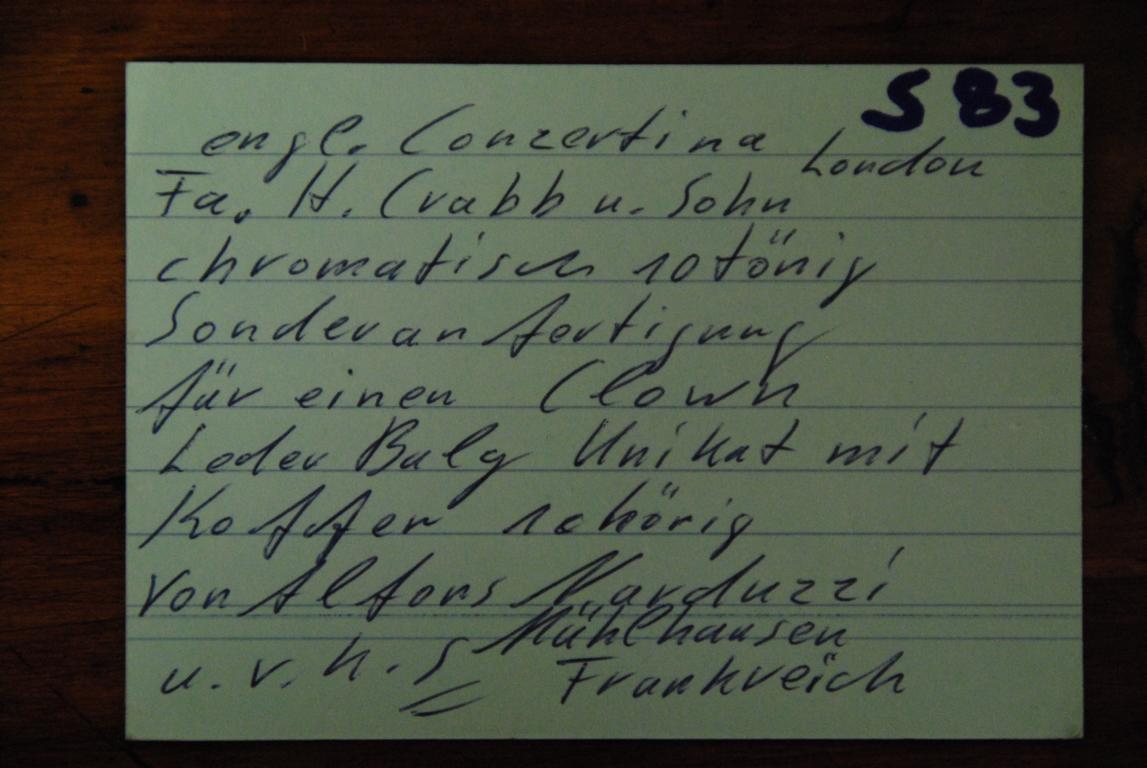 S 83
engl. Conzertina
London
Fa. H. Crabb u. Sohn
chromatisch 10tönig
Sonderanfertigung
für einen Clown
Leder Balg Unikat mit
Koffer 1chörig
von Alfons Narduzzi
Mühlhausen
u. v. h. S Frankreich